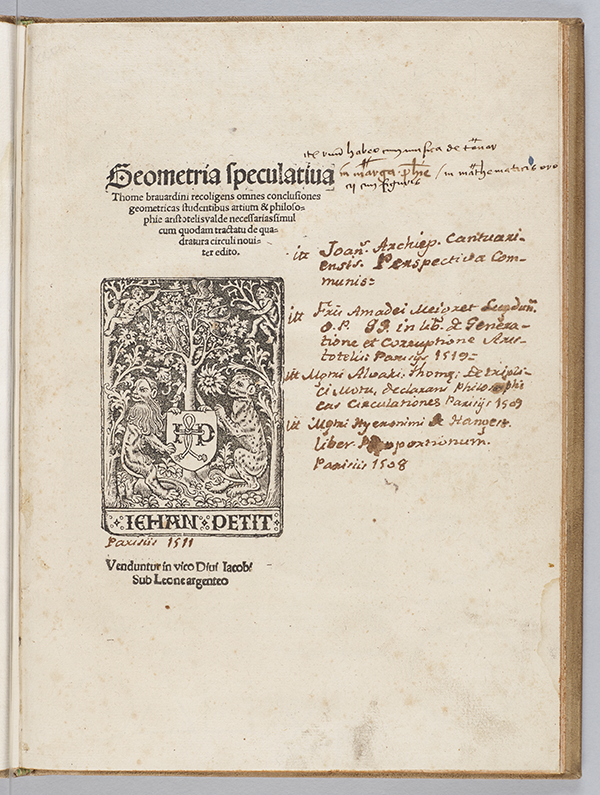 Geometria speculatiua
Thome brauardini recoligens omnes conclusiones
geometricas studentibus artium & philoso-
phie aristotelis valde necessarias simul
cum quodam tractatu de qua-
dratura circuli noui-
ter edito.
habeo cum musica de
in marga. phie / in mathematicis
cum figuris
ite Joan. Archiep. Cantuari-
ensis. Perspectiva Com-
munis:
ite Fris Amadei Meigret Lugdun.
O. P. in lib. de Genera-
tione et Corruptione Aris-
totelis Parisijs 1519-
ite Mgri Alvari Thomę: de tripli-
ci Motu, declarans philosophi
cas Circulationes Parisijs 1509
ite Mgri Hyeronimi de Hangest
liber Proportionum.
Parisiis 1508
HP
IEHAN PETIT
Parisiis 1511
Venduntur in vico Diui Iacobi
Sub Leone argenteo